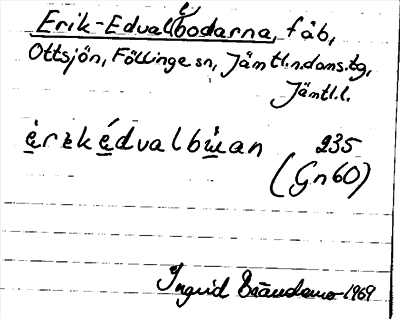 Erik-Edvalbodarna, fäb,
Ottsjön, Föllinge sn, Jämtl.n.doms.tg,
Jämtl.l.
ėrekédvalbu̇an 235
(Gn60)
Ingrid 1969